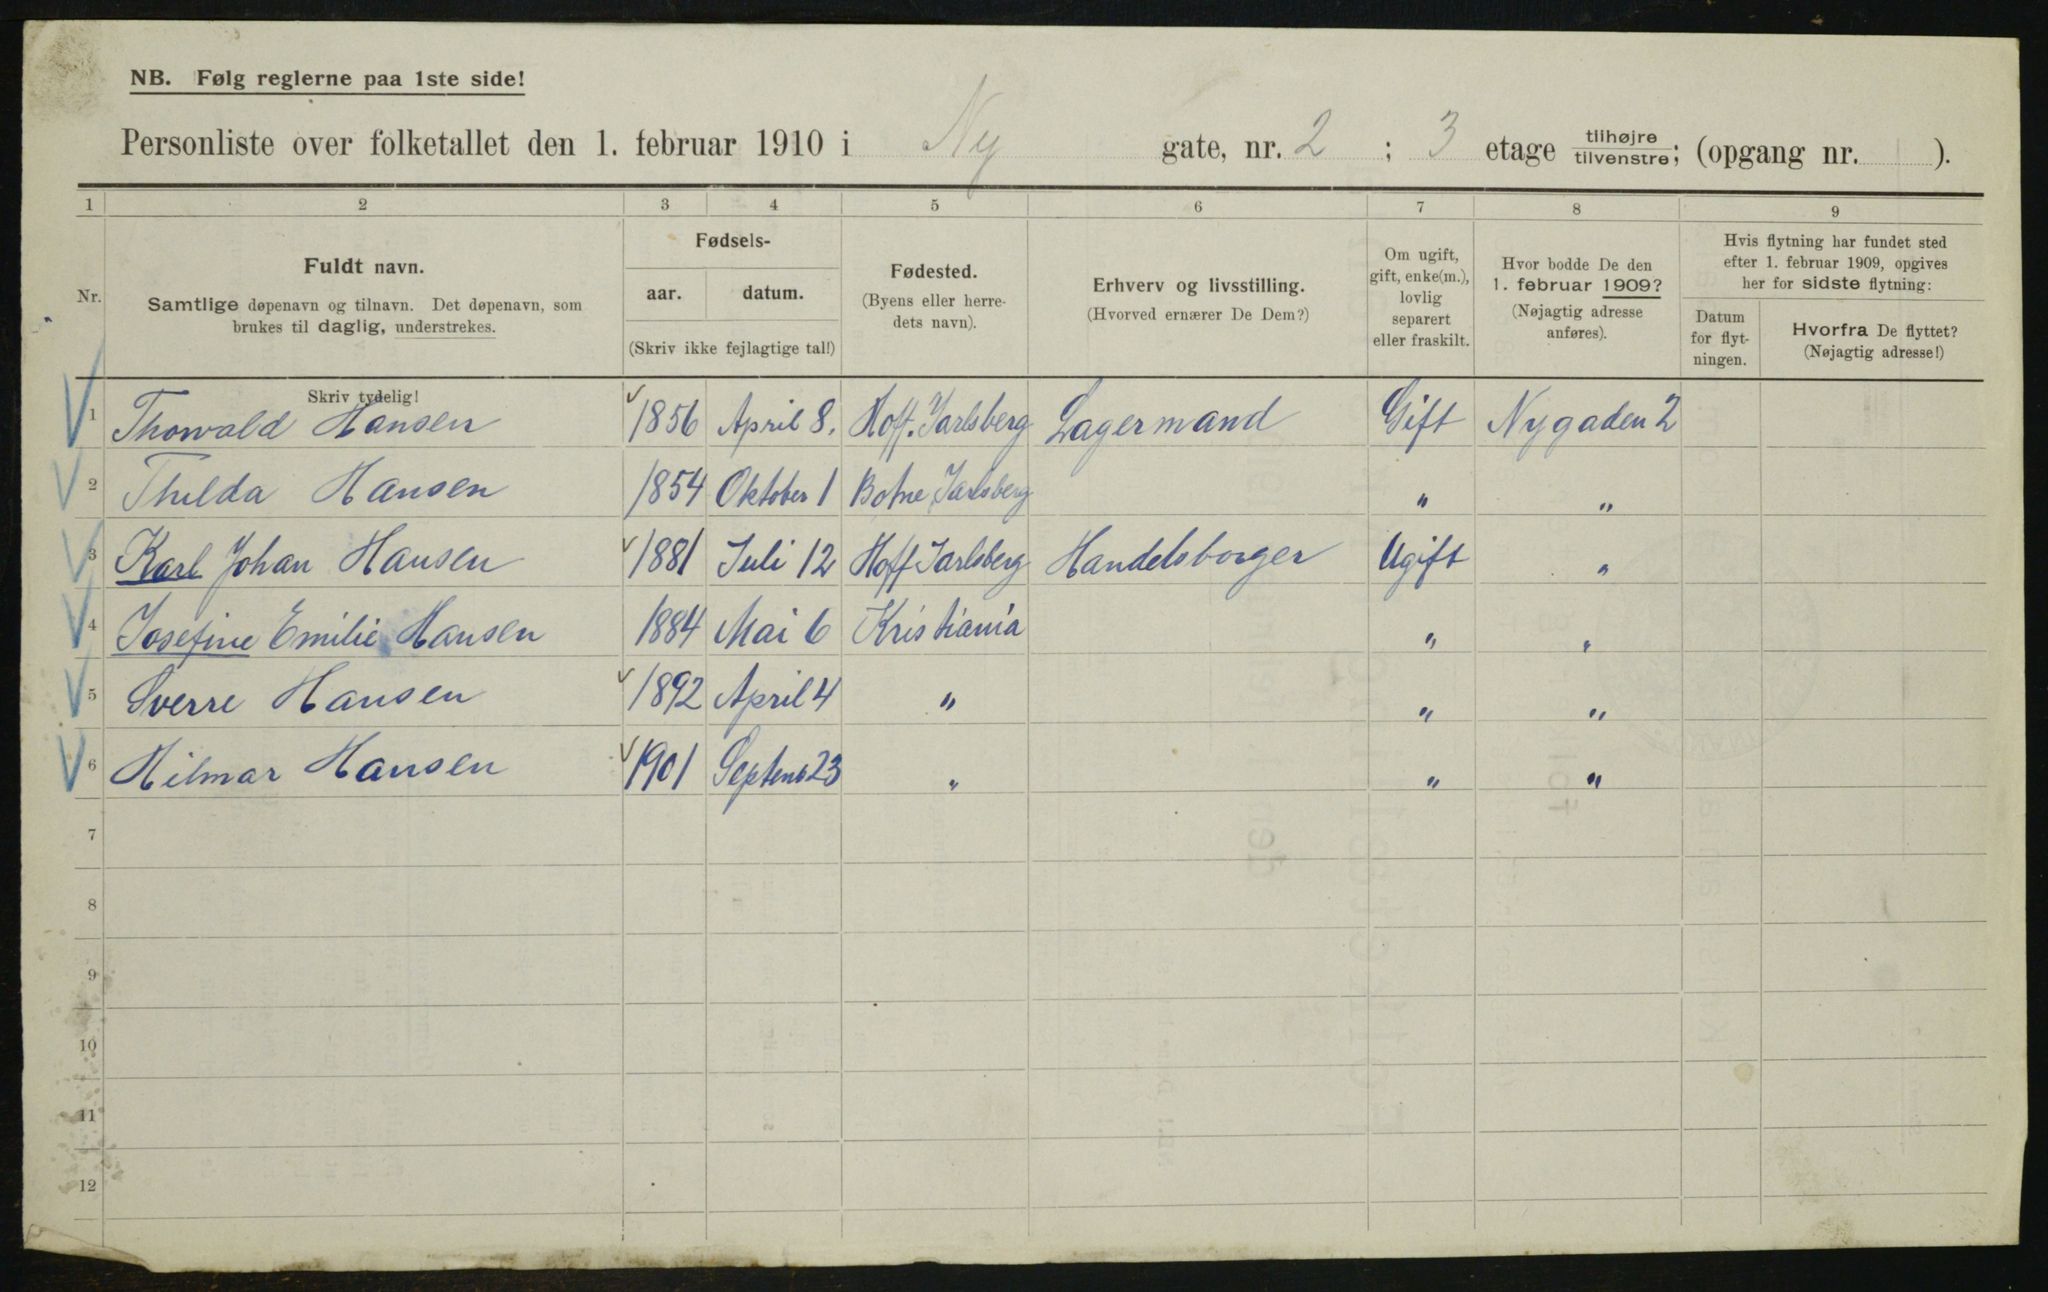 NB. Følg reglerne paa 1ste side!
Personliste over folketallet den 1. februar 1910 i Ny gate, nr. 2 ; 3 etage tilhøjre tilvenstre; (opgang nr. ).
1 2 3 4 5 6 7 8 9
Nr.
Fuldt navn.
Samtlige døpenavn og tilnavn. Det døpenavn, som
brukes til daglig, understrekes.
Fødsels-
aar. datum.
(Skriv ikke fejlagtige tal!)
Fødested.
(Byens eller herre-
dets navn).
Erhverv og livsstilling.
(Hvorved ernærer De Dem?)
Om ugift,
gift, enke(m.),
lovlig
separert
eller fraskilt.
Hvor bodde De den
1. februar 1909?
(Nøjagtig adresse
anføres).
Hvis flytning har fundet sted
efter 1. februar 1909, opgives
her for sidste flytning:
Datum
for flyt-
ningen.
Hvorfra De flyttet?
(Nøjagtig adresse!)
Skriv tydelig!
1 Thorvald Hansen 1856 April 8. Hoff. Jarlsberg Lagermand Gift Nygaden 2
2 Thilda Hansen 1854 Oktober 1 Botne Jarlsberg " "
3 Karl Johan Hansen 1881 Juli 12 Hoff Jarlsberg Handelsborger Ugift "
4 Josefine Emilie Hansen 1884 Mai 6 Kristiania " "
5 Sverre Hansen 1892 April 4 " " "
6 Hilmar Hansen 1901 Septemb 23 " " "
7
8
9
10
11
12